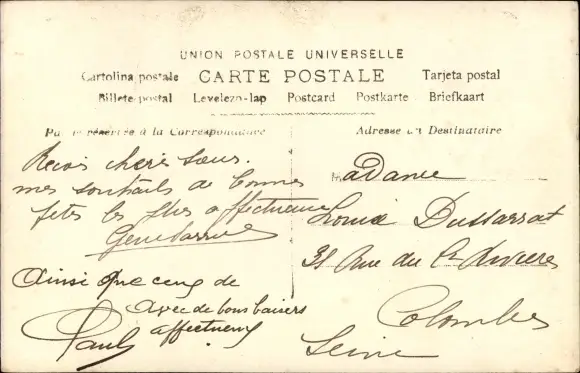 UNION POSTALE UNIVERSELLE
Cartolina postale CARTE POSTALE Tarjeta postal
Billete postal Levelezo-lap Postcard Postkarte Briefkaart
Partie réservée à la Correspondance
Adresse du Destinataire
Reçois chère Sœur.
mes souhaits de bonnes
fêtes les plus affectueux
Ainsi que ceux de
avec de bons baisers
affectueux
Paul
Madame
Louise Dussarrat
31 Rue du
Colombes
Seine